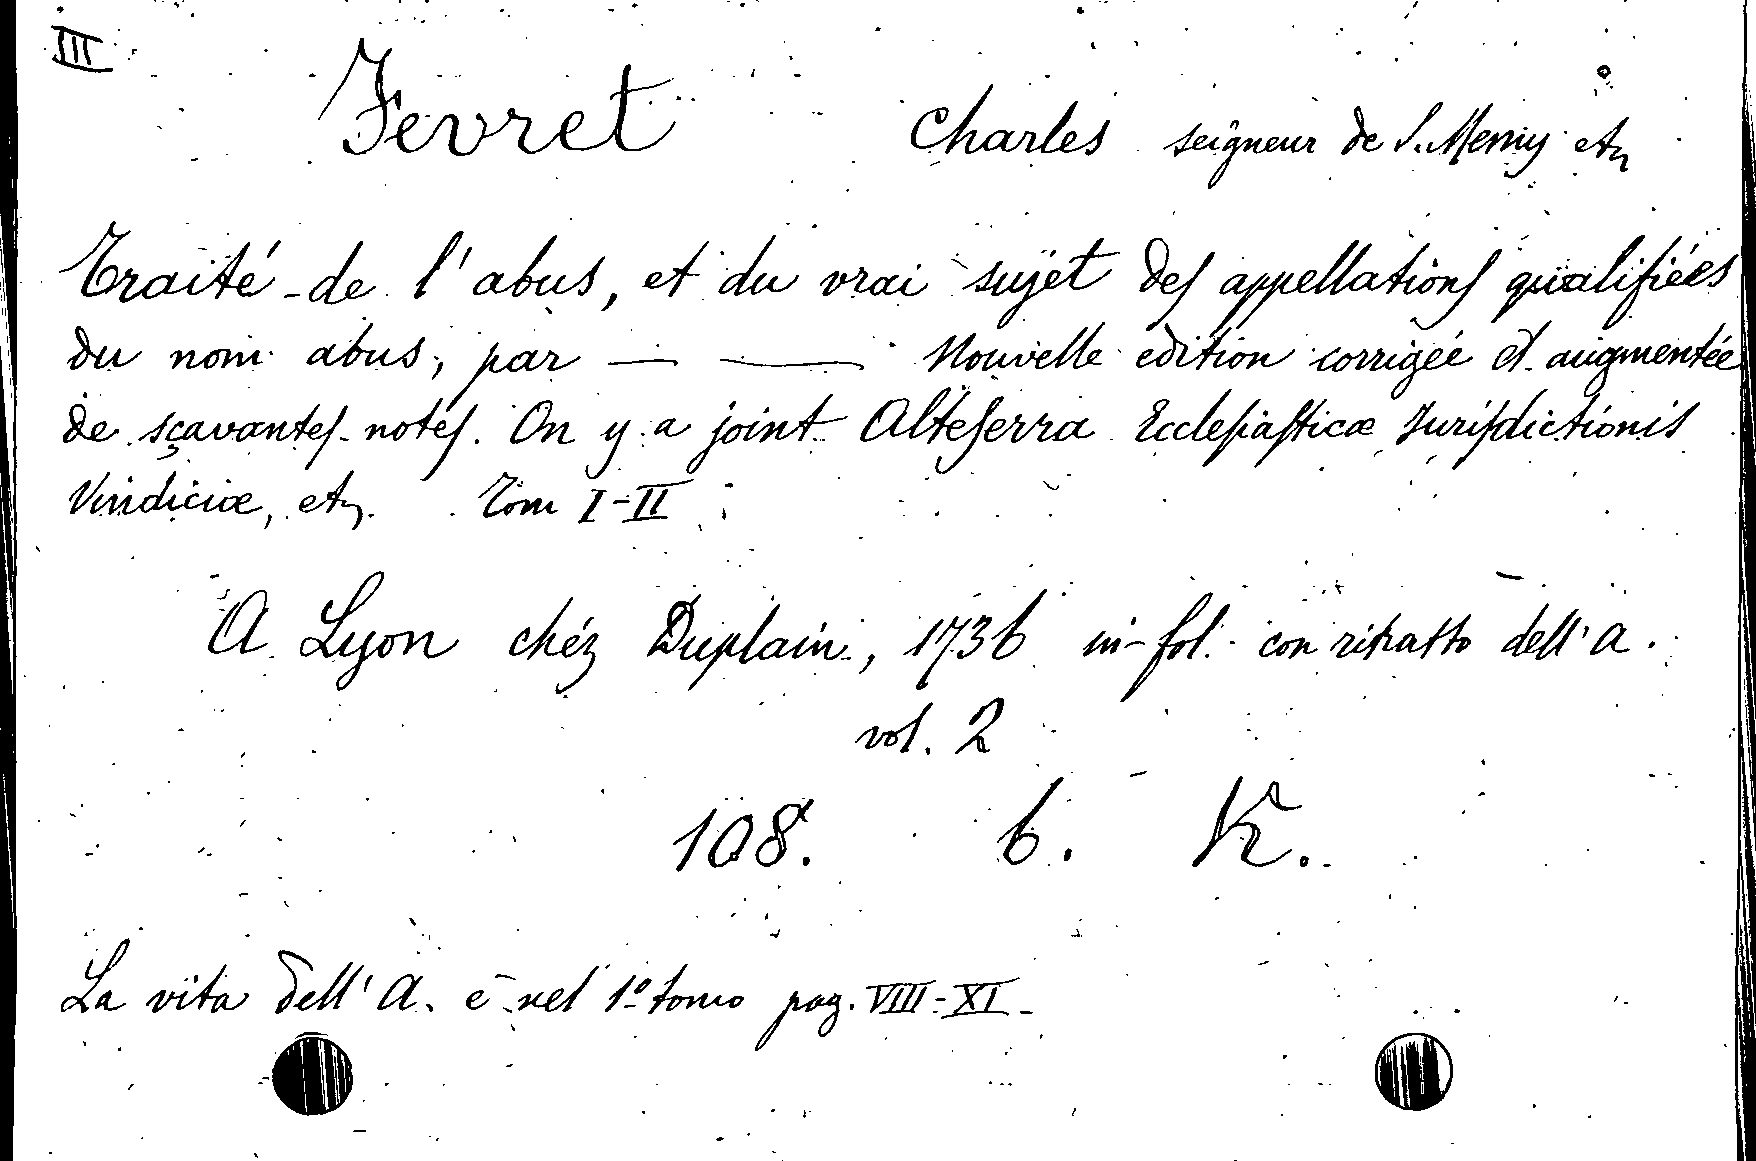 III
Fevret Charles seigneur de S. Memy etc
Traité de l'abus, et du vrai sujet des appellations qualifiées
du nom abus, par — — Nouvelle edition corrigée et augmentée
de sçavantes notes. On y a joint Alteserra Ecclesiasticæ Jurisdictionis
Vindiciæ, etc. Tom I-II
A Lyon chéz Duplain, 1736 in-fol. con ritratto dell'a.
vol. 2
108. b. K.
La vita dell'A. è nel 1º tomo pag. VIII-XI.